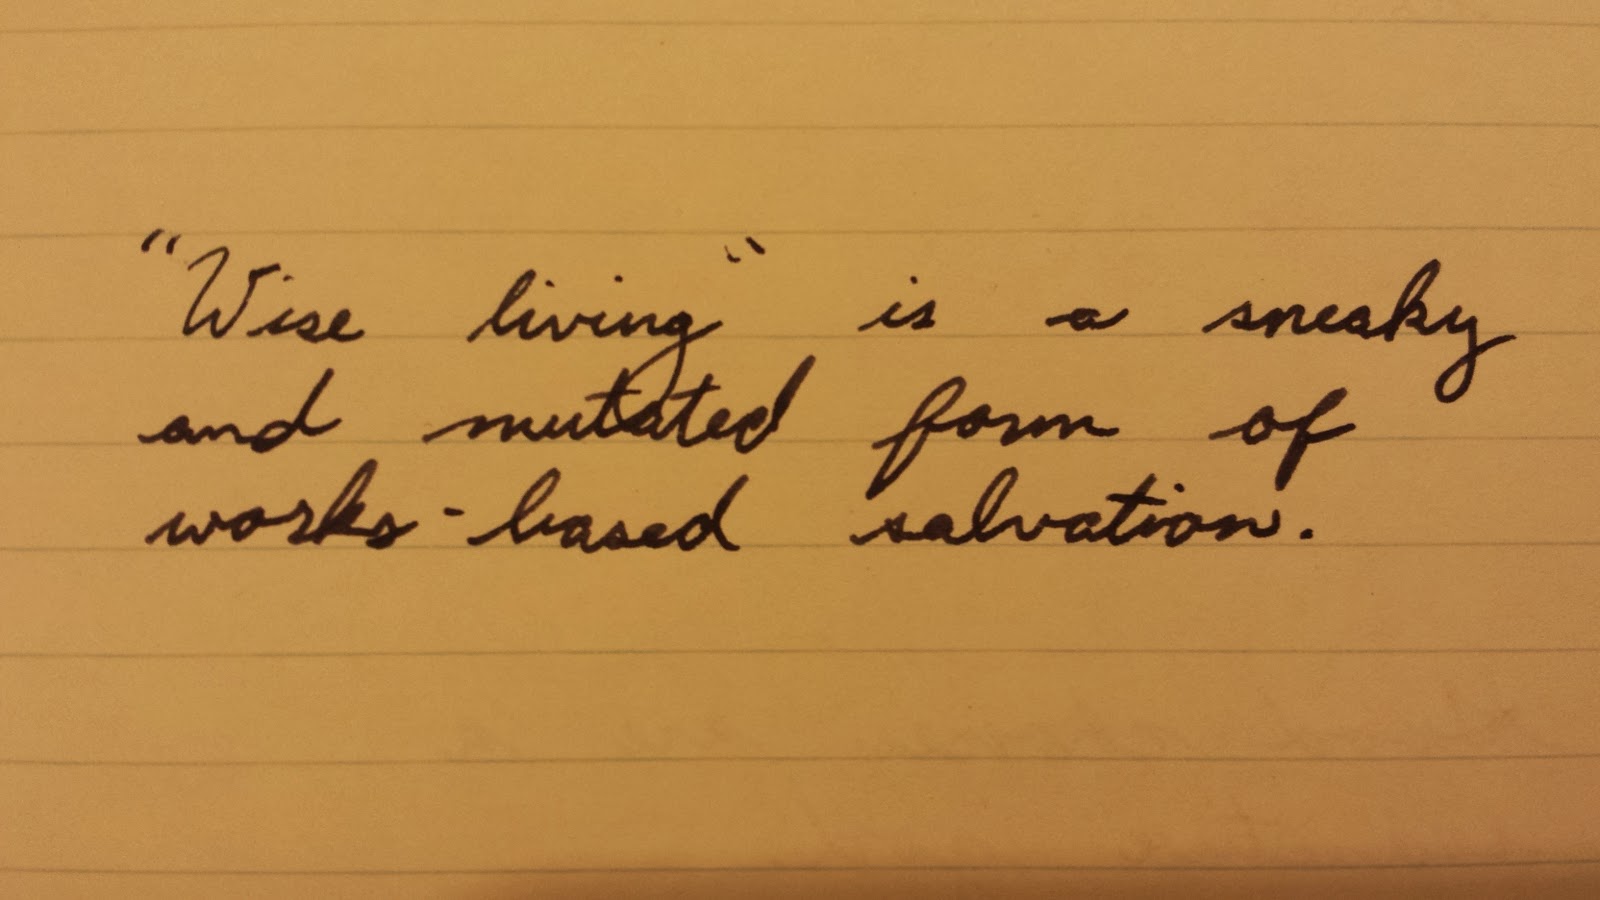 "Wise living" is a sneaky
and mutated form of
works-based salvation.